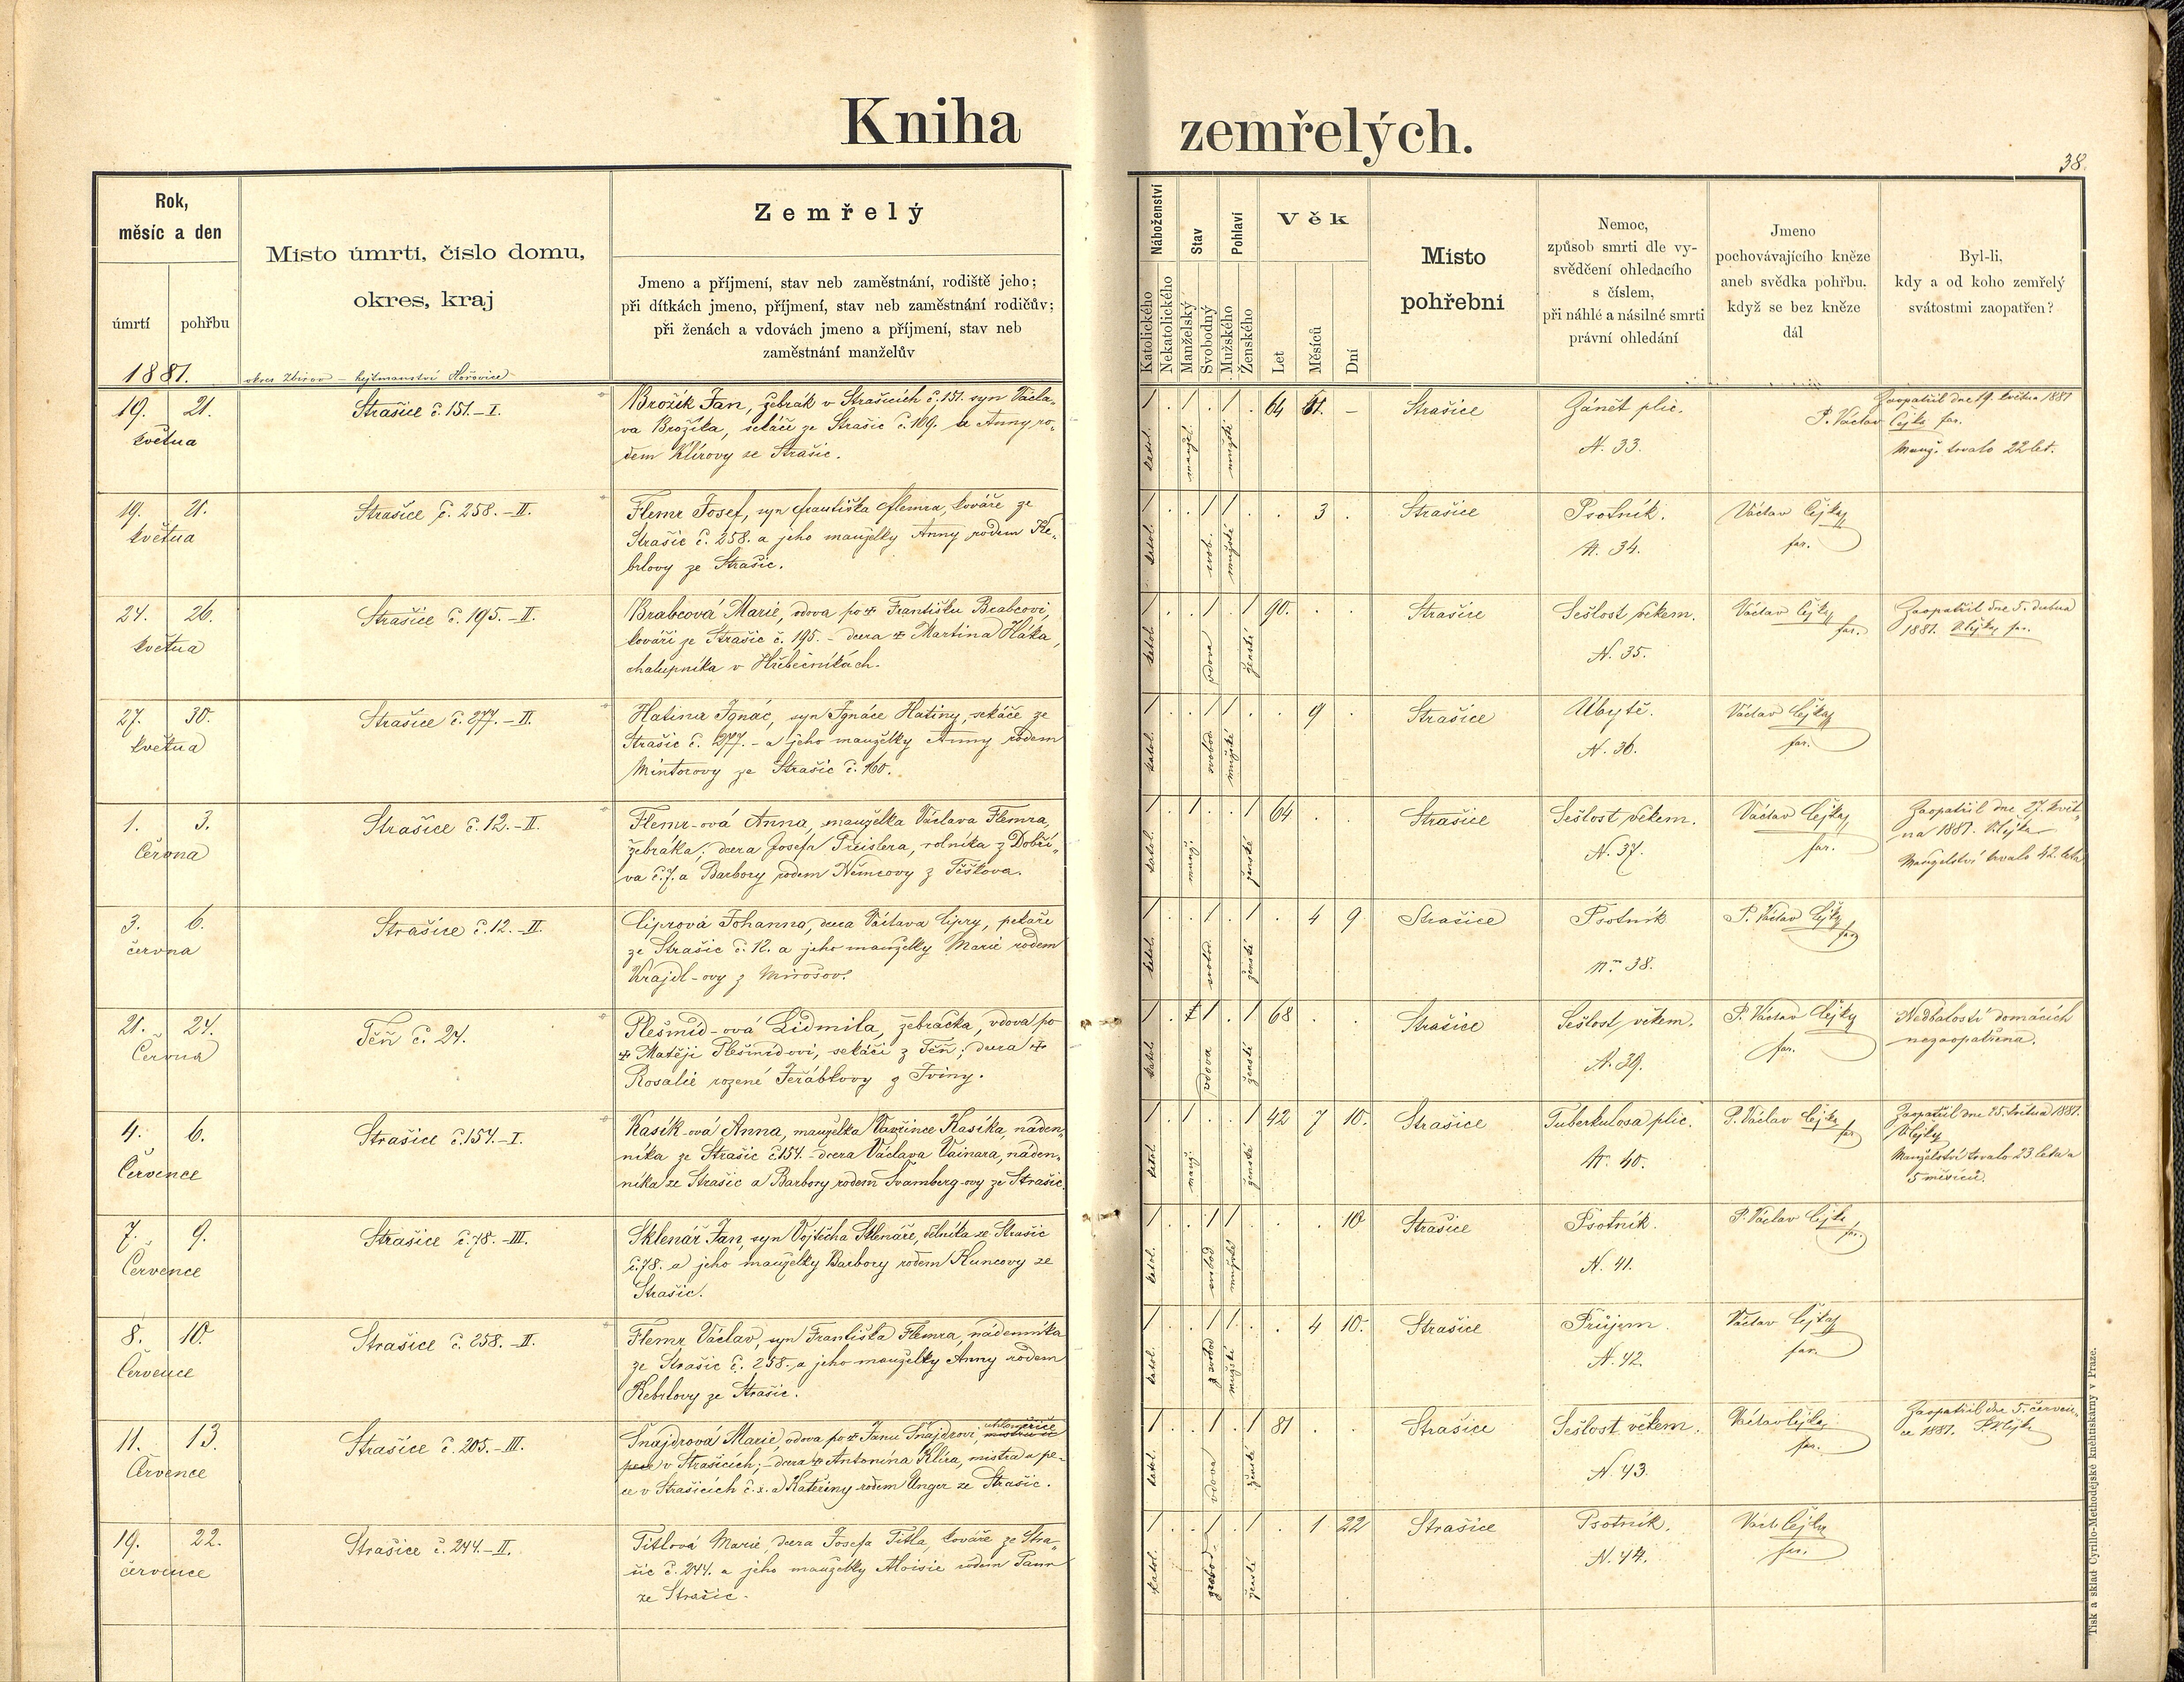 Kniha zemřelých.
38.
Rok,
měsíc a den
úmrtí
pohřbu
1881.
Místo úmrtí, číslo domu,
okres, kraj
okres Zbirov – hejtmanství Hořovice
Zemřelý
Jmeno a příjmení, stav neb zaměstnání, rodiště jeho;
při dítkách jmeno, příjmení, stav neb zaměstnání rodičův;
při ženách a vdovách jmeno a příjmení, stav neb
zaměstnání manželův
Náboženství
Katolického
Nekatolického
Stav
Manželský
Svobodný
Pohlaví
Mužského
Ženského
Věk
Let
Měsíců
Dní
Místo
pohřební
Nemoc,
způsob smrti dle vy-
svědčení ohledacího
s číslem,
při náhlé a násilné smrti
právní ohledání
Jmeno
pochovávajícího kněze
aneb svědka pohřbu,
když se bez kněze
dál
Byl-li,
kdy a od koho zemřelý
svátostmi zaopatřen?
19. 21.
května
Strašice č. 151.–I.
Brožík Jan, žebrák v Strašicích č. 151. syn Václa-
va Brožíka, sekáče ze Strašic č. 109. a Anny ro-
dem Klírovy ze Strašic.
katol. manžel. mužské
64
Strašice
Zánět plic.
N. 33.
Zaopatřil dne 19. května 1881
P. Václav Cejka far.
Manž. trvalo 22 let.
19. 21.
května
Strašice č. 258.–II.
Flemr Josef, syn Františka Flemra, kováře ze
Strašic č. 258. a jeho manželky Anny rodem Ke-
brlovy ze Strašic.
katol. svob. mužské
3
Strašice
Psotník.
N. 34.
Václav Cejka
far.
24. 26.
května
Strašice č. 195.–II.
Brabcová Marie, vdova po † Františku Brabcovi,
kováři ze Strašic č. 195. – dcera † Martina Háka,
chalupníka v Hřebečníkách.
katol. vdova ženské
90.
Strašice
Sešlost věkem.
N. 35.
Václav Cejka
far.
Zaopatřil dne 5. dubna
1881. V. Cejka far.
27. 30.
května
Strašice č. 277.–II.
Hatina Ignác, syn Ignáce Hatiny, sekáče ze
Strašic č. 277. – a jeho manželky Anny rodem
Mintorovy ze Strašic č. 160.
katol. svobod. mužské
9
Strašice
Úbytě.
N. 36.
Václav Cejka
far.
1. 3.
Června
Strašice č. 12.–II.
Flemr-ová Anna, manželka Václava Flemra,
žebráka; dcera Josefa Preislera, rolníka z Dobří-
va č. 7. a Barbory rodem Němcovy z Těškova.
katol. manž. ženské
64
Strašice
Sešlost věkem.
N. 37.
Václav Cejka
far.
Zaopatřil dne 27. květ-
na 1881. V. Cejka
Manželství trvalo 42. leta
3. 6.
června
Strašice č. 12.–II.
Ciprová Johanna, dcera Václava Cipry, pekaře
ze Strašic č. 12. a jeho manželky Marie rodem
Krajdl-ovy z Mirošov.
katol. svobod. ženské
4 9
Strašice
Psotník
Nro 38.
P. Václav Cejka
far.
21. 24.
Června
Těň č. 24.
Plešmíd-ová Lidmila, žebračka, vdova po
† Matěji Plešmidovi, sekáči z Těň; dcera †
Rosalie rozené Jeřábkovy z Tviny.
katol. vdova ženské
68
Strašice
Sešlost věkem.
N. 39.
P. Václav Cejka
far.
Nedbalostí domácích
nezaopatřena.
4. 6.
Července
Strašice č. 154.–I.
Kasík-ová Anna, manželka Vavřince Kasíka, náden-
níka ze Strašic č. 154. – dcera Václava Vainara, náden-
níka ze Strašic a Barbory rodem Švamberg-ovy ze Strašic.
katol. manž. ženské
42 7 10.
Strašice
Tuberkulosa plic.
N. 40.
P. Václav Cejka
far.
Zaopatřil dne 25. května 1881.
V. Cejka
Manželství trvalo 23 leta a
5 měsíců.
7. 9.
Července
Strašice č. 78.–III.
Sklenář Jan, syn Vojtěcha Sklenáře, dělníka ze Strašic
č. 78. a jeho manželky Barbory rodem Kuncovy ze
Strašic.
katol. svobod. mužské
10
Strašice
Psotník.
N. 41.
P. Václav Cejka
far.
8. 10.
Července
Strašice č. 258.–II.
Flemr Václav, syn Františka Flemra, nádenníka
ze Strašic č. 258. a jeho manželky Anny rodem
Kebrlovy ze Strašic.
katol. svobod mužské
4 10.
Strašice
Průjem.
N. 42.
Václav Cejka
far.
11. 13.
Července
Strašice č. 205.–III.
Šnajdrová Marie, vdova po † Janu Šnajdrovi,
v Strašicích; – dcera † Antonína Klíra, mistra u pe-
ce v Strašicích č. x. a Kateřiny rodem Unger ze Strašic.
katol. vdova ženské
81
Strašice
Sešlost věkem.
N. 43.
Václav Cejka
far.
Zaopatřil dne 5. červen-
ce 1881. P. V. Cejka
19. 22.
července
Strašice č. 244.–II.
Titlová Marie, dcera Josefa Titla, kováře ze Stra-
šic č. 244. a jeho manželky Aloisie rodem Pann
ze Strašic.
katol. svobod. ženské
1 22
Strašice
Psotník.
N. 44.
Václ. Cejka
far.
Tisk a sklad Cyrillo-Methodějské kněhtiskárny v Praze.